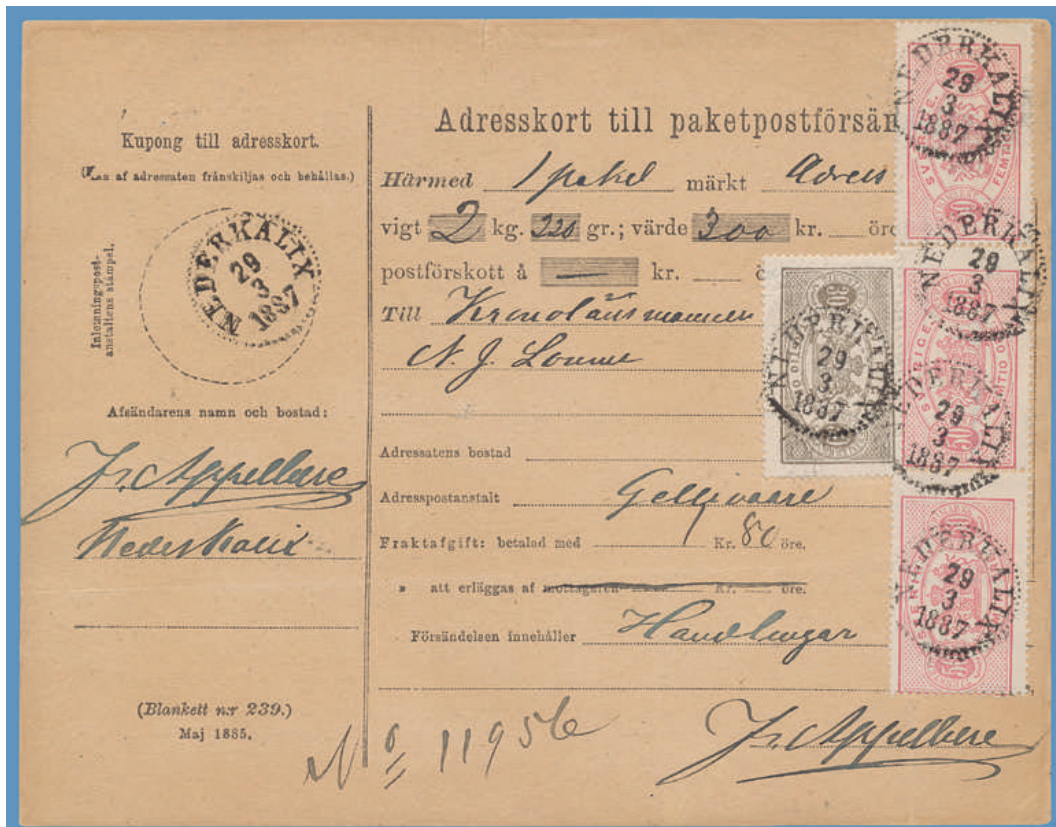 Kupong till adresskort.
(Kan af adressaten frånskiljas och behållas.)
Inlemningspost-
anstaltens stämpel.
NEDERKALIX
29
3
1887
Afsändarens namn och bostad:
Nederkalix
(Blankett n:r 239.)
Maj 1885.
Adresskort till paketpostförsän
Härmed 1 paket märkt Adress
vigt 2 kg. 220 gr.; värde 300 kr. öre
postförskott å — kr. ö
Till Kronolänsmannen
N. J.
Adressatens bostad
Adresspostanstalt Gellivaare
Fraktafgift: betalad med Kr. 80 öre.
» att erläggas af mottagaren Kr. öre.
Försändelsen innehåller Handlingar
No 11956
NEDERKALIX
29
3
1887
SVERIGE
FEMTIO
NEDERKALIX
29
3
1887
SVERIGE
FEMTIO
50
NEDERKALIX
29
3
1887
NEDERKALIX
29
3
1887
NEDERKALIX
29
3
1887
50